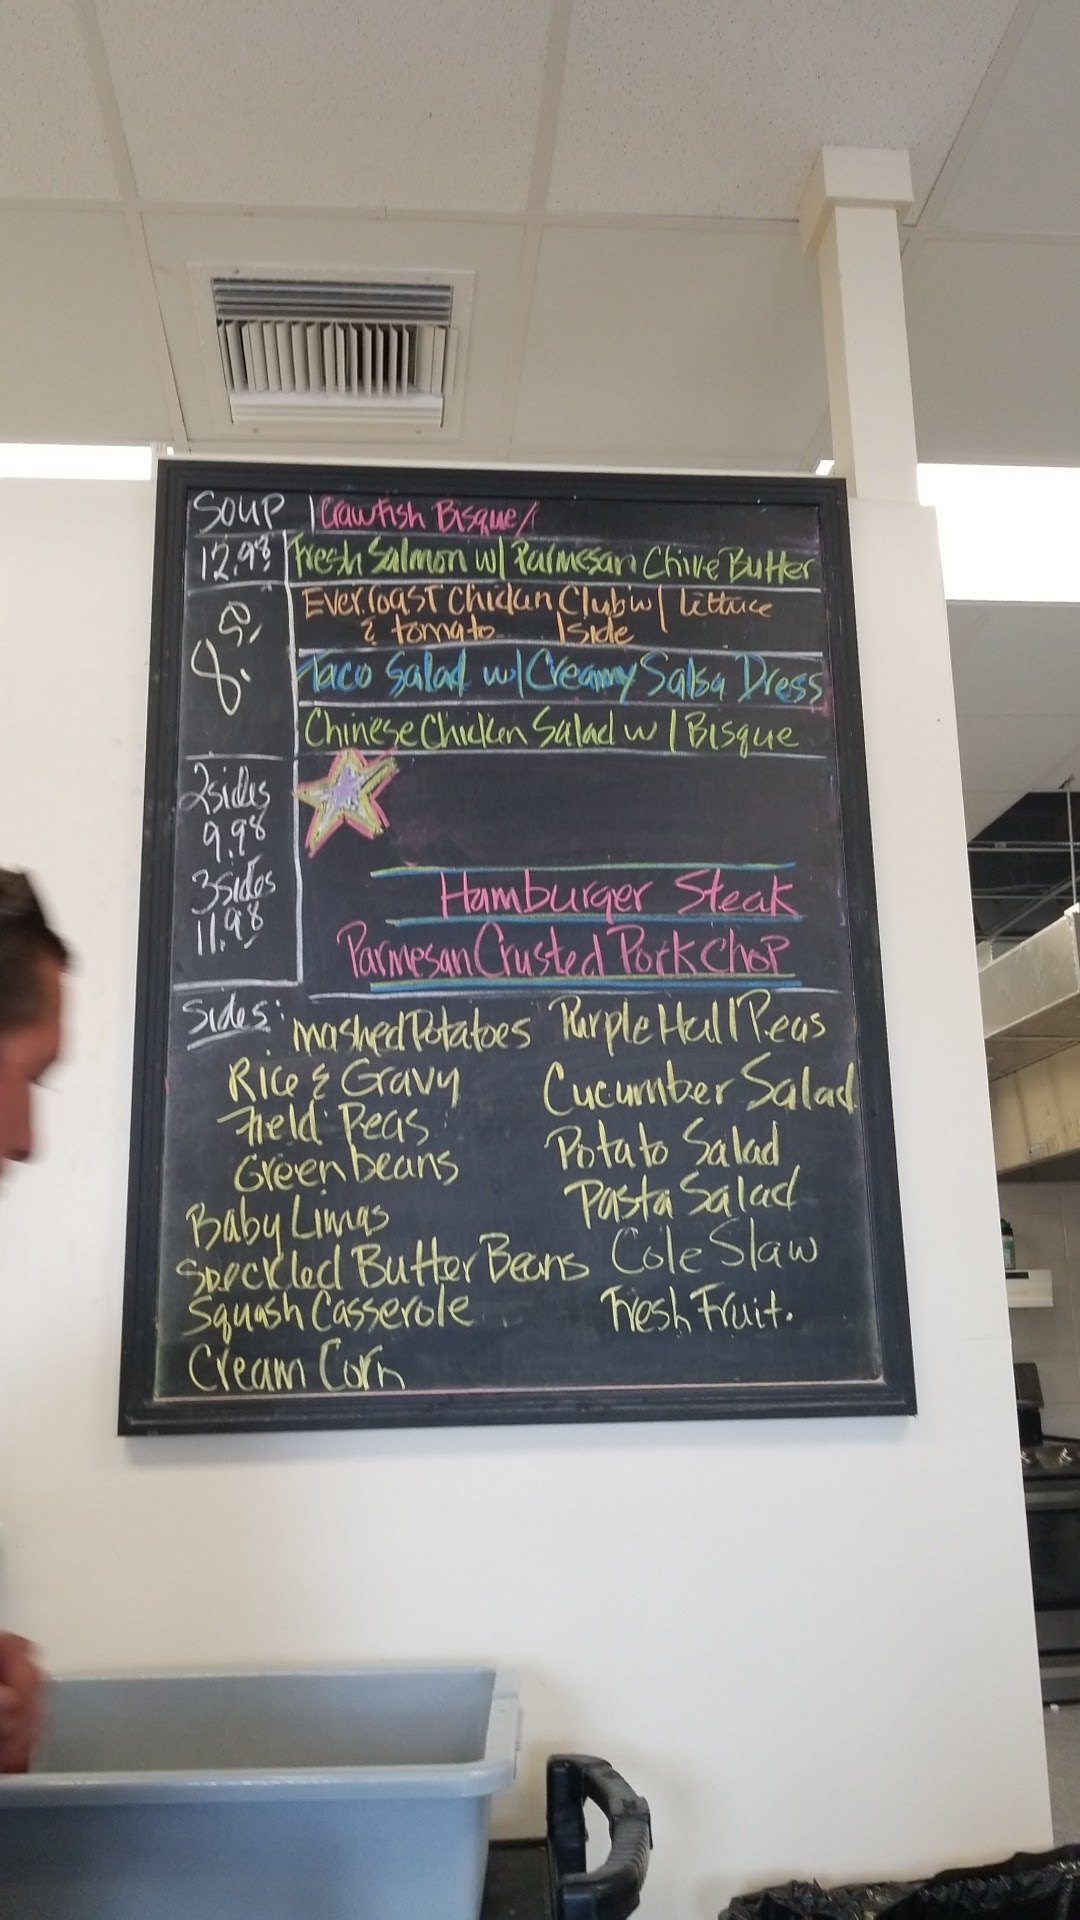 SOUP Crawfish Bisque/
12.98 Fresh Salmon w/ Parmesan Chive Butter
Everroast Chicken Club w/ lettuce
& tomato 1side
Taco Salad w/ Creamy Salsa Dress
Chinese Chicken Salad w/ Bisque
2sides
9.98
3sides
11.98
Hamburger Steak
Parmesan Crusted Pork Chop
Sides:
Mashed Potatoes
Rice & Gravy
Field Peas
Green beans
Baby Limas
Speckled Butter Beans
Squash Casserole
Cream Corn
Purple Hull Peas
Cucumber Salad
Potato Salad
Pasta Salad
Cole Slaw
Fresh Fruit.